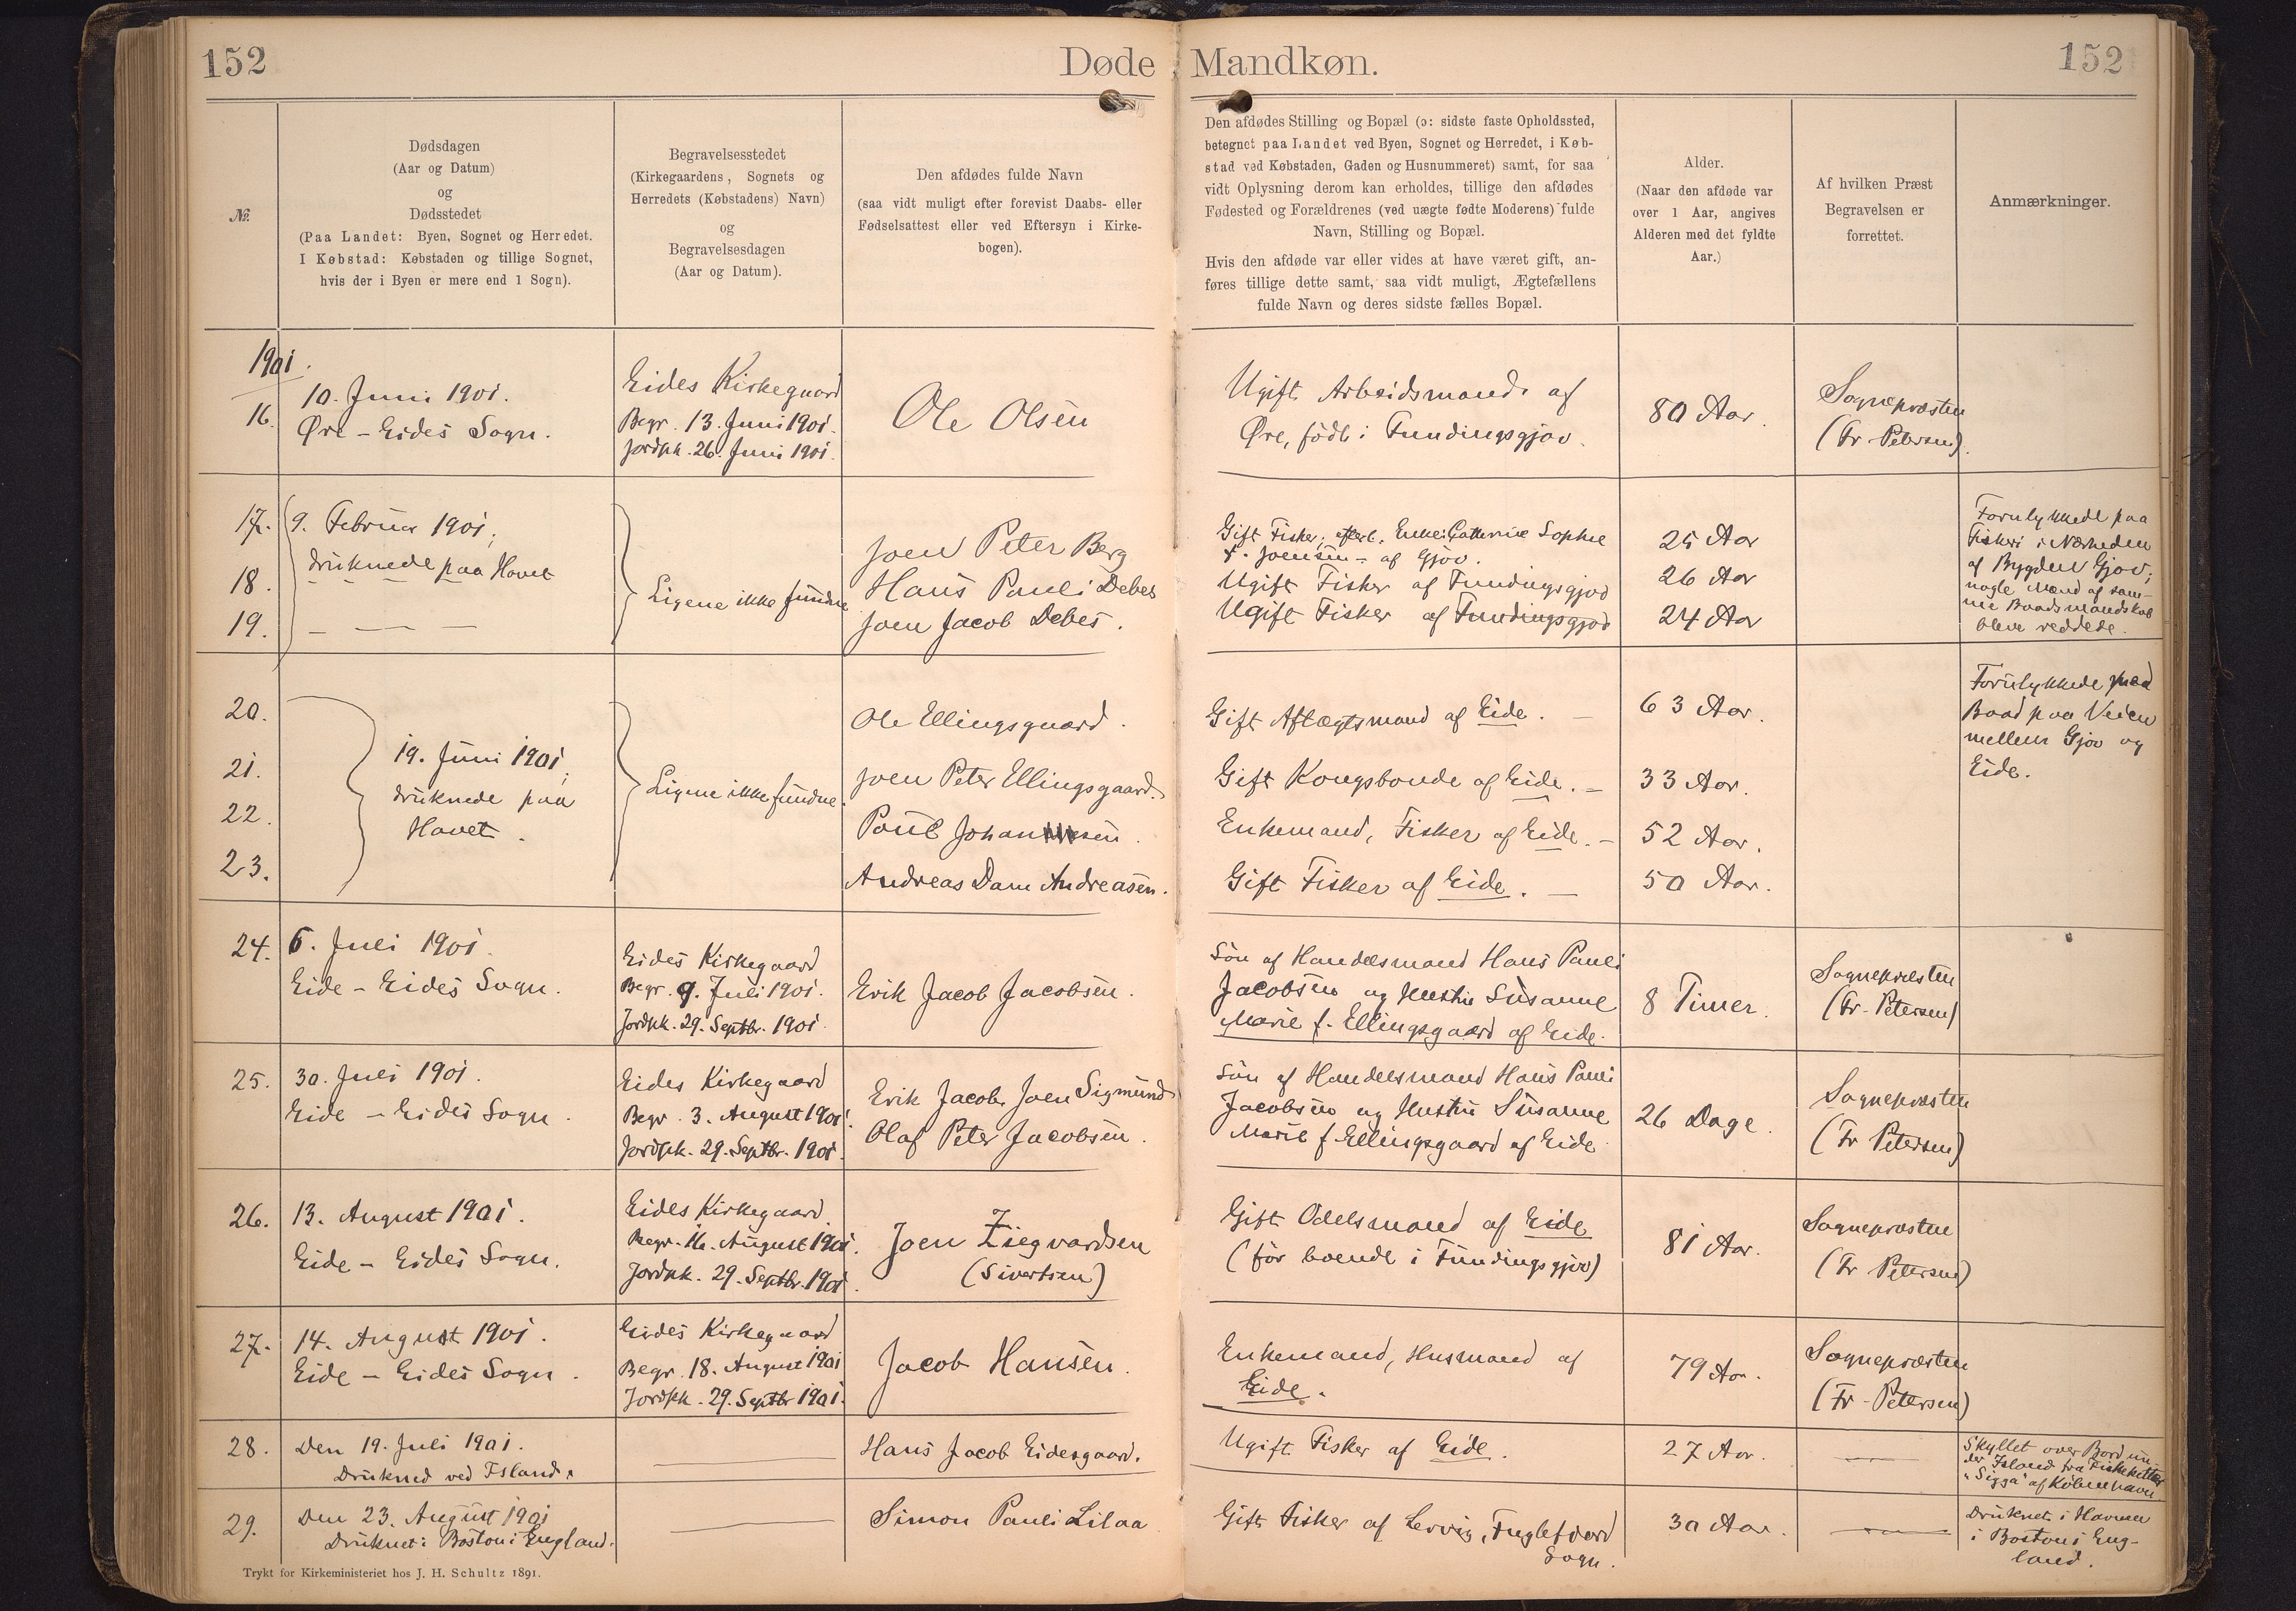 152
Døde
Mandkøn.
152
№
Dødsdagen
(Aar og Datum)
og
Dødsstedet
(Paa Landet: Byen, Sognet og Herredet.
I Købstad: Købstaden og tillige Sognet,
hvis der i Byen er mere end 1 Sogn).
Begravelsesstedet
(Kirkegaardens, Sognets og
Herredets (Købstadens) Navn)
og
Begravelsesdagen
(Aar og Datum).
Den afdødes fulde Navn
(saa vidt muligt efter forevist Daabs- eller
Fødselsattest eller ved Eftersyn i Kirke-
bogen).
Den afdødes Stilling og Bopæl (ɔ: sidste faste Opholdssted,
betegnet paa Landet ved Byen, Sognet og Herredet, i Køb-
stad ved Købstaden, Gaden og Husnummeret) samt, for saa
vidt Oplysning derom kan erholdes, tillige den afdødes
Fødested og Forældrenes (ved uægte fødte Moderens) fulde
Navn, Stilling og Bopæl.
Hvis den afdøde var eller vides at have været gift, an-
føres tillige dette samt, saa vidt muligt, Ægtefællens
fulde Navn og deres sidste fælles Bopæl.
Alder.
(Naar den afdøde var
over 1 Aar, angives
Alderen med det fyldte
Aar.)
Af hvilken Præst
Begravelsen er
forrettet.
Anmærkninger.
1901.
16.
10. Juni 1901.
Øre – Eides Sogn.
Eides Kirkegaard
Begr. 13. Juni 1901.
Jordpk. 26. Juni 1901.
Ole Olsen
Ugift Arbeidsmand af
Øre, född i Fundingsgjov.
80 Aar.
Sognepræsten
(Fr. Petersen).
17.
9. Februar 1901;
druknede paa Havet
18.
19.
– — —
Ligene ikke fundne
Joen Peter Berg
Hans Pauli Debes
Joen Jacob Debes.
Gift Fisker; efterl. Enke: Cathrine Sophie
f. Joensen – af Gjov.
Ugift Fisker af Fundingsgjov
Ugift Fisker af Fundingsgjov
25 Aar
26 Aar
24 Aar
Forulykkede paa
Fiskeri i Nærheden
af Bygden Gjov;
nogle Mænd af sam-
me Baadsmandskab
bleve reddede.
20.
21.
22.
23.
19. Juni 1901;
druknede paa
Havet.
Ligene ikke fundne.
Ole Ellingsgaard.
Joen Peter Ellingsgaard.
Poul Johannesen.
Andreas Dam Andreasen.
Gift Aftægtsmand af Eide. –
Gift Kongsbonde af Eide. –
Enkemand, Fisker af Eide. –
Gift Fisker af Eide. –
63 Aar.
33 Aar.
52 Aar.
50 Aar.
Forulykkede med
Baad paa Veien
mellem Gjov og
Eide.
24.
6. Juli 1901.
Eide – Eides Sogn.
Eides Kirkegaard
Begr. 9. Juli 1901.
Jordpk. 29. Septbr. 1901.
Erik Jacob Jacobsen.
Sön af Handelsmand Hans Pauli
Jacobsen og Hustru Susanne
Marie f. Ellingsgaard af Eide.
8 Timer.
Sognepræsten
(Fr. Petersen)
25.
30. Juli 1901.
Eide – Eides Sogn.
Eides Kirkegaard
Begr. 3. August 1901.
Jordpk. 29. Septbr. 1901.
Erik Jacob Joen Sigmund
Olaf Peter Jacobsen.
Sön af Handelsmand Hans Pauli
Jacobsen og Hustru Susanne
Marie f. Ellingsgaard af Eide.
26 Dage.
Sognepræsten
(Fr. Petersen)
26.
13. August 1901.
Eide – Eides Sogn.
Eides Kirkegaard
Begr. 16. August 1901.
Jordpk. 29. Septbr. 1901.
Joen Ziegvardsen
(Sivertsen)
Gift Odelsmand af Eide
(för boende i Fundingsgjov)
81 Aar.
Sognepræsten
(Fr. Petersen)
27.
14. August 1901.
Eide – Eides Sogn.
Eides Kirkegaard
Begr. 18. August 1901
Jordpk. 29. Septbr 1901.
Jacob Hansen.
Enkemand, Husmand af
Eide.
79 Aar.
Sognepræsten
(Fr. Petersen)
28.
Den 19. Juli 1901.
Drukned ved Island.
Hans Jacob Eidesgaard.
Ugift Fisker af Eide.
27 Aar.
Skyllet over Bord un-
der Island fra Fiskekutter
"Sigga" af Köbenhavn.
29.
Den 23. August 1901
Druknet i Boston i England.
Simon Pauli Lilaa
Gift Fisker af Lervig, Fuglefjord
Sogn.
30 Aar.
Druknet i Havnen
i Boston i Eng-
land.
Trykt for Kirkeministeriet hos J. H. Schultz 1891.